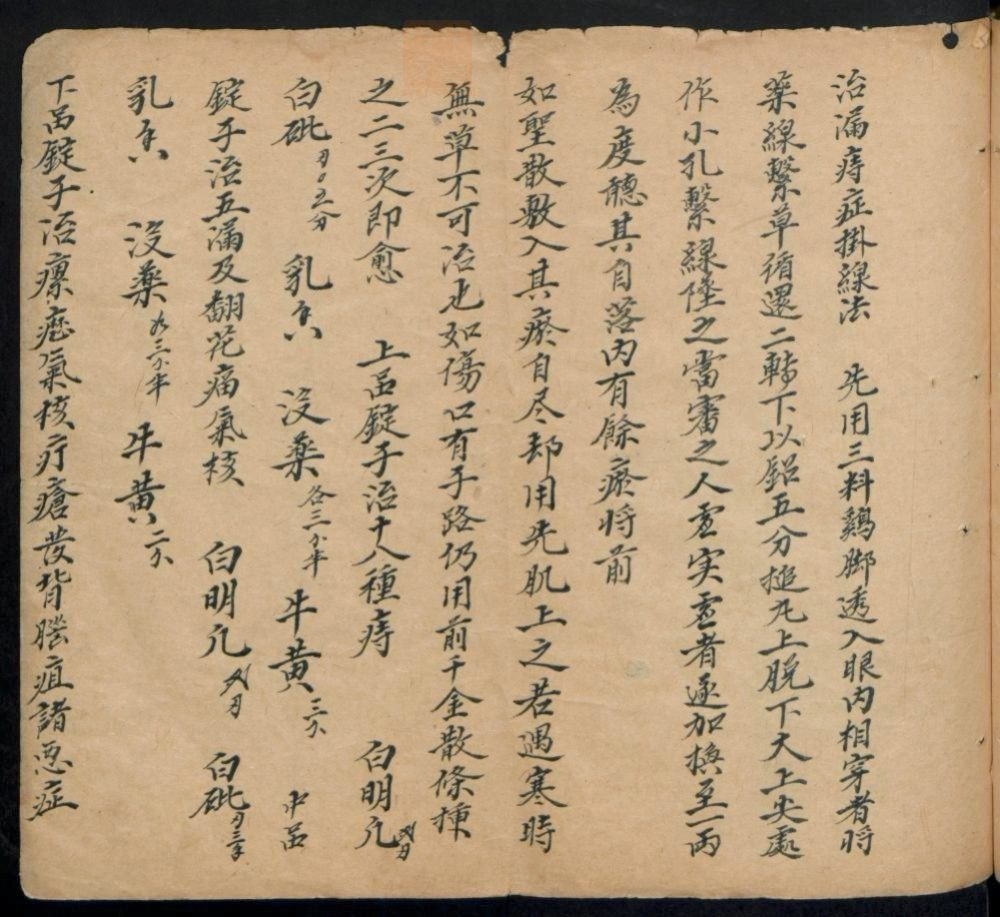 治漏痔症掛線法　先用三料鷄脚透入眼内相穿者将
藥線繫草循還二轉下以鋁五分搥丸上脱下大上尖處
作小孔繫線墜之當審之人虛实虛者逐加換至一両
為度聽其自落内有餘瘀将前
如聖散敷入其瘀自尽却用先肌上之若遇寒時
無草不可治也如傷口有手路仍用前千金散條揷
之二三次即愈　上品錠子治十八種痔　白明凢
白砒　乳香　没藥 各三分半　牛黄 三分　中品
錠子治五漏及翻花痛氣核　白明凢　白砒
乳香　没藥 三分半　牛黄 二分
下品錠子治瘰癧氣核疔瘡發背腦疽諸悪症